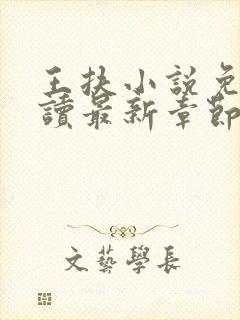 王扶小說免
讀最新章節
文藝學長